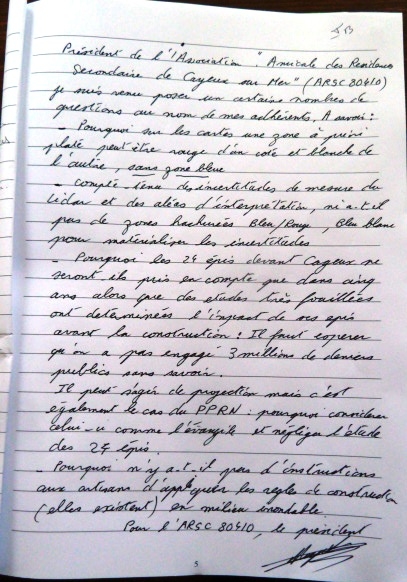 JB
Président de l'Association "Amicale des Residences
Secondaire de Cayeux sur Mer" (ARSC 80410)
je suis venu poser un certains nombres de
questions au nom de mes adhérents. A savoir :
- Pourquoi sur les cartes une zone à priori
plate peut être rouge d'un coté et blanche de
l'autre, sans zone bleue
- Compte-tenu des incertitudes de mesure du
Lidar et des aléas d'interprétation, n'i a-t-il
pas de zones hachurées Bleu/Rouge, Bleu blanc
pour matérialiser les incertitudes
- Pourquoi les 24 épis devant Cayeux ne
seront ils pris en compte que dans cinq
ans alors que des etudes très fouillées
ont determinées l'impact de ces epis
avant la construction : Il faut esperer
qu'on a pas engagé 3 millions de deniers
publics sans savoir.
Il peut s'agir de projection mais c'est
également le cas du PPRN : pourquoi considerer
celui-ci comme l'évangile et négliger l'étude
des 24 épis.
- Pourquoi n'y a-t-il pas d'instructions
aux artisans d'appliquer les regles de construction
(elles existent) en milieu inondable.
Pour l'ARSC 80410, le président
5